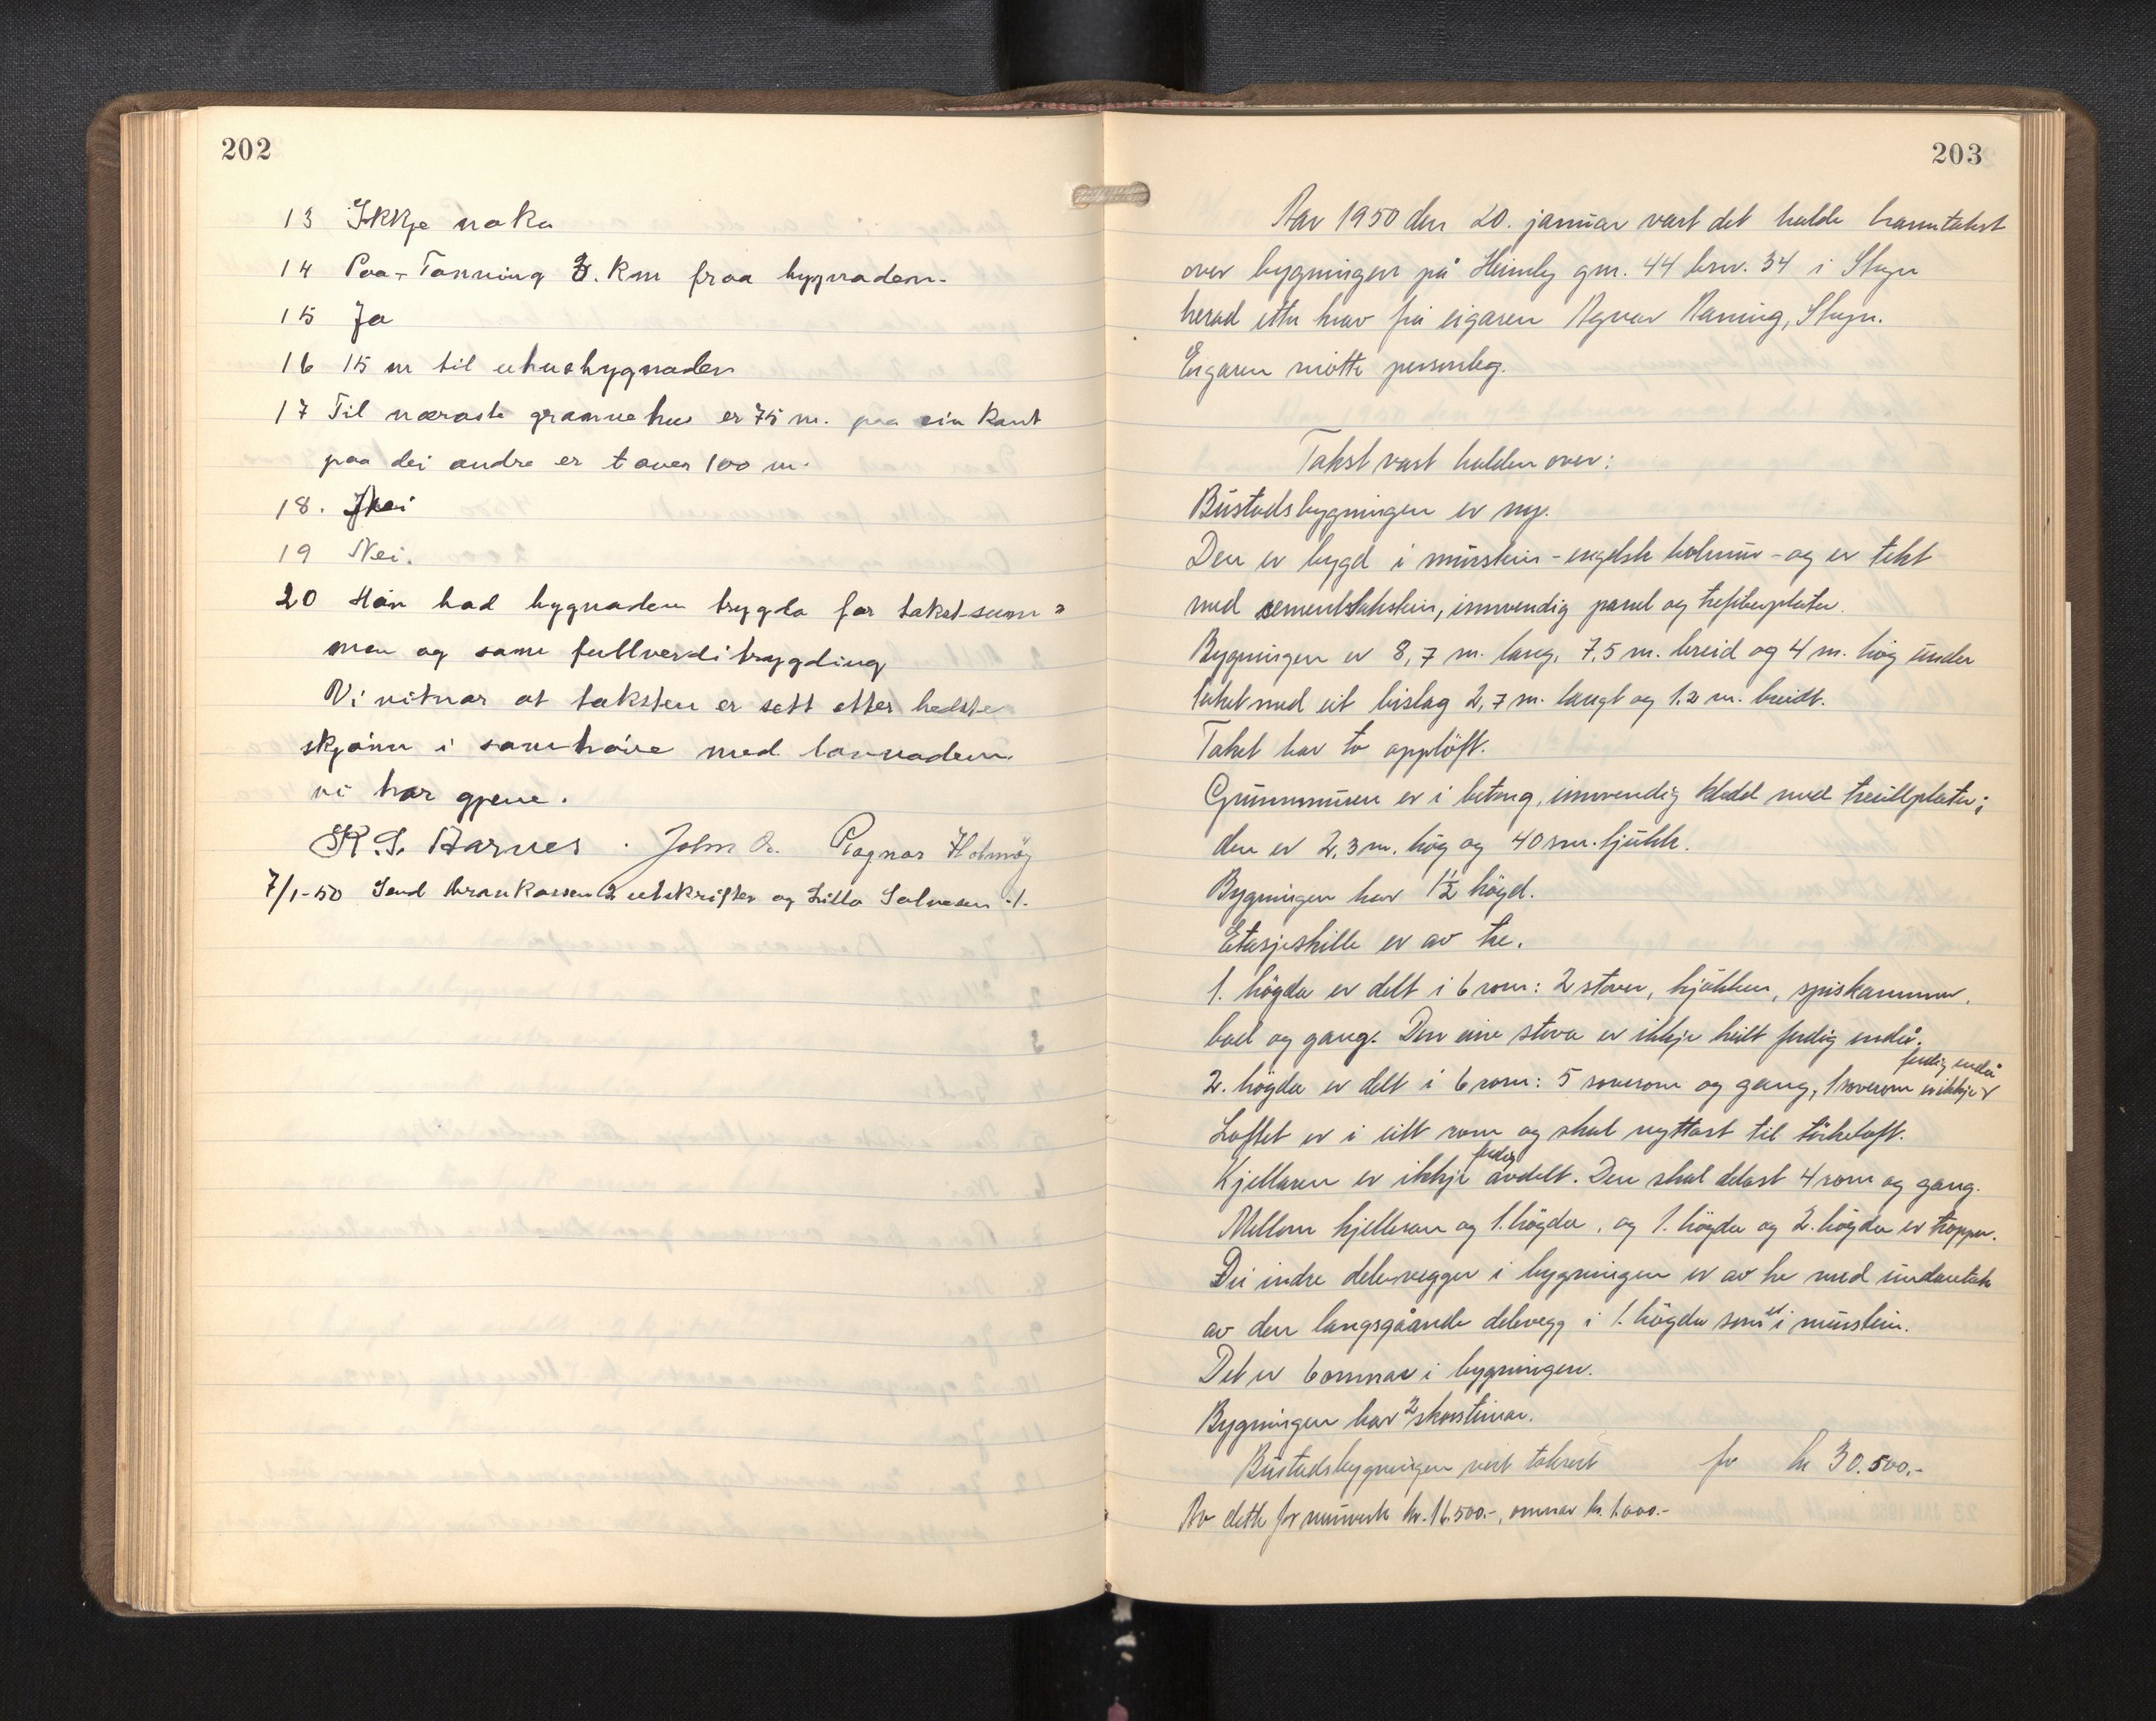 202
13 Ikkje noko
14 Paa Tonning 3. km fraa bygnaden.
15 Ja
16 15 m til uthusbygnaden
17 Til næraste grannehus er 75 m. paa ein kant
paa dei andre er over 100 m.
18. Nei
19 Nei.
20 Han bad bygnaden trygda for takst-sum=
men og same fullverditrygding
Vi vitnar at taksten er sett etter beste
skjönn i samhöve med lovnaden
vi har gjeve.
K. S. Aarnes . John Ø. Ragnar Holmöy
7/1-50 Send Brankassen 2 utskrifter og Lilla Salvesen 1.
203
Aar 1950 den 20. januar vart det halde branntakst
over bygningen på Heimly gnr. 44 bnr. 34 i Stryn
herad etter krav frå eigaren Ragnar Maning, Stryn.
Eigaren møtte personleg.
Takst vart halden over:
Bustadsbygningen er ny.
Den er bygd i murstein - engelsk holmur - og er tekt
med sementtakstein, innvendig panel og trefiberplater.
Bygningen er 8,7 m. lang, 7,5 m. breid og 4 m. høg under
taket med eit bislag 2,7 m. langt og 1.2 m. breidt.
Taket har to opplöft.
Grunnmuren er i betong, innvendig kledd med treullplater;
den er 2,3 m. høg og 40 sm. tjukk.
Bygningen har 1 1/2 högd.
Etasjeskille er av tre.
1. högda er delt i 6 rom: 2 stover, kjøkken, spiskammer,
bad og gang. Den eine stova er ikkje heilt ferdig endå.
2. högda er delt i 6 rom: 5 soverom og gang, 1 soverom er ikkje ferdig endå
Loftet er i eitt rom og skal nyttast til tørkeloft.
Kjellaren er ikkje ferdig avdelt. Den skal delast 4 rom og gang.
Mellom kjellaren og 1. högda, og 1. högda og 2. högda er tropper.
Dei indre delevegger i bygningen er av tre med undantak
av den langsgåande delevegg i 1. högda som er i murstein.
Det er 6 omnar i bygningen.
Bygningen har 2 skorsteinar.
Bustadsbygningen vert taksert for kr 30.500.-
Av dette for murverk kr. 16.500.-, omnar kr. 1.000.-